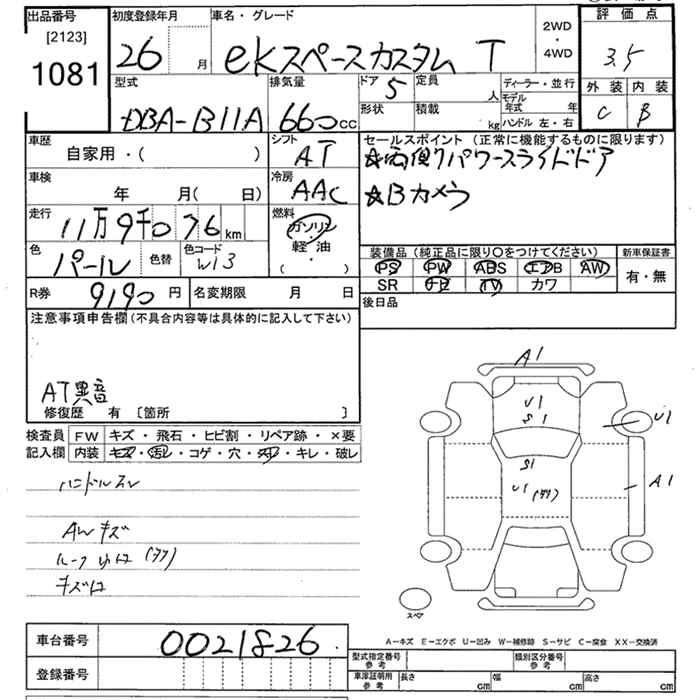 出品番号
[2123]
1081
初度登録年月
26 月
車名・グレード
ekスペースカスタム T
2WD
・
4WD
評価点
3.5
外装 内装
C B
型式
DBA-B11A
排気量
660cc
ドア
5
形状
定員
人
積載
kg
ディーラー・並行
モデル年式 年
ハンドル 左・右
車歴
自家用・( )
シフト
AT
セールスポイント (正常に機能するものに限ります)
★両側パワースライドドア
★Bカメラ
車検
年 月( 日)
冷房
AAC
走行
11万9千076km
燃料
ガソリン
軽・油
( ・ )
色
パール
色替
色コード
W13
装備品 (純正品に限り〇をつけてください)
PS PW ABS エアB AW
SR ナビ TV カワ
新車保証書
有・無
R券 9190円
名変期限 月 日
後日品
注意事項申告欄(不具合内容等は具体的に記入して下さい)
AT異音
修復歴 有 〔箇所 〕
検査員 FW キズ・飛石・ヒビ割・リペア跡・×要
記入欄 内装 キズ・汚レ・コゲ・穴・スレ・キレ・破レ
ハンドルスレ
AWキズ
キズ
A1
U1
S1
U1
S1
U1
A1
スペア
A-キズ E-エクボ U-凹み W-補修跡 S-サビ C-腐食 XX-交換済
車台番号 0021826
登録番号
型式指定番号
参考
類別区分番号
参考
車庫証明用
参考
長さ cm 幅 cm 高さ cm